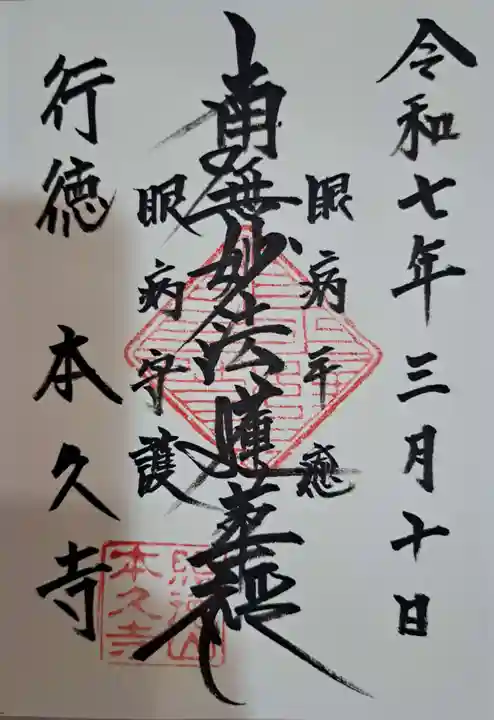 令和七年三月十日
眼病平癒
南無妙法蓮華経
眼病守護
行徳 本久寺
照徳山
本久寺